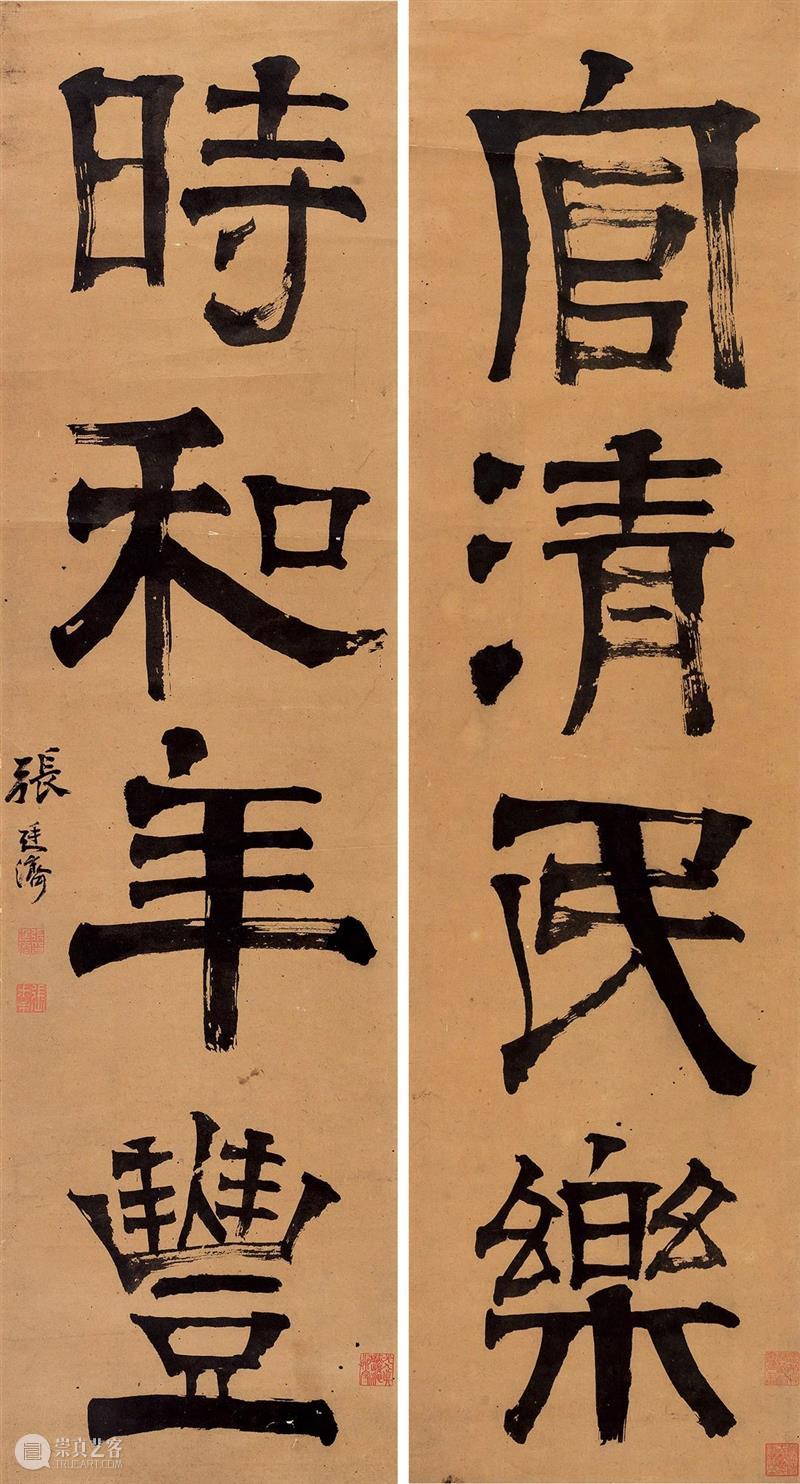 官清民樂
時和年豐
張廷濟
崇真艺客